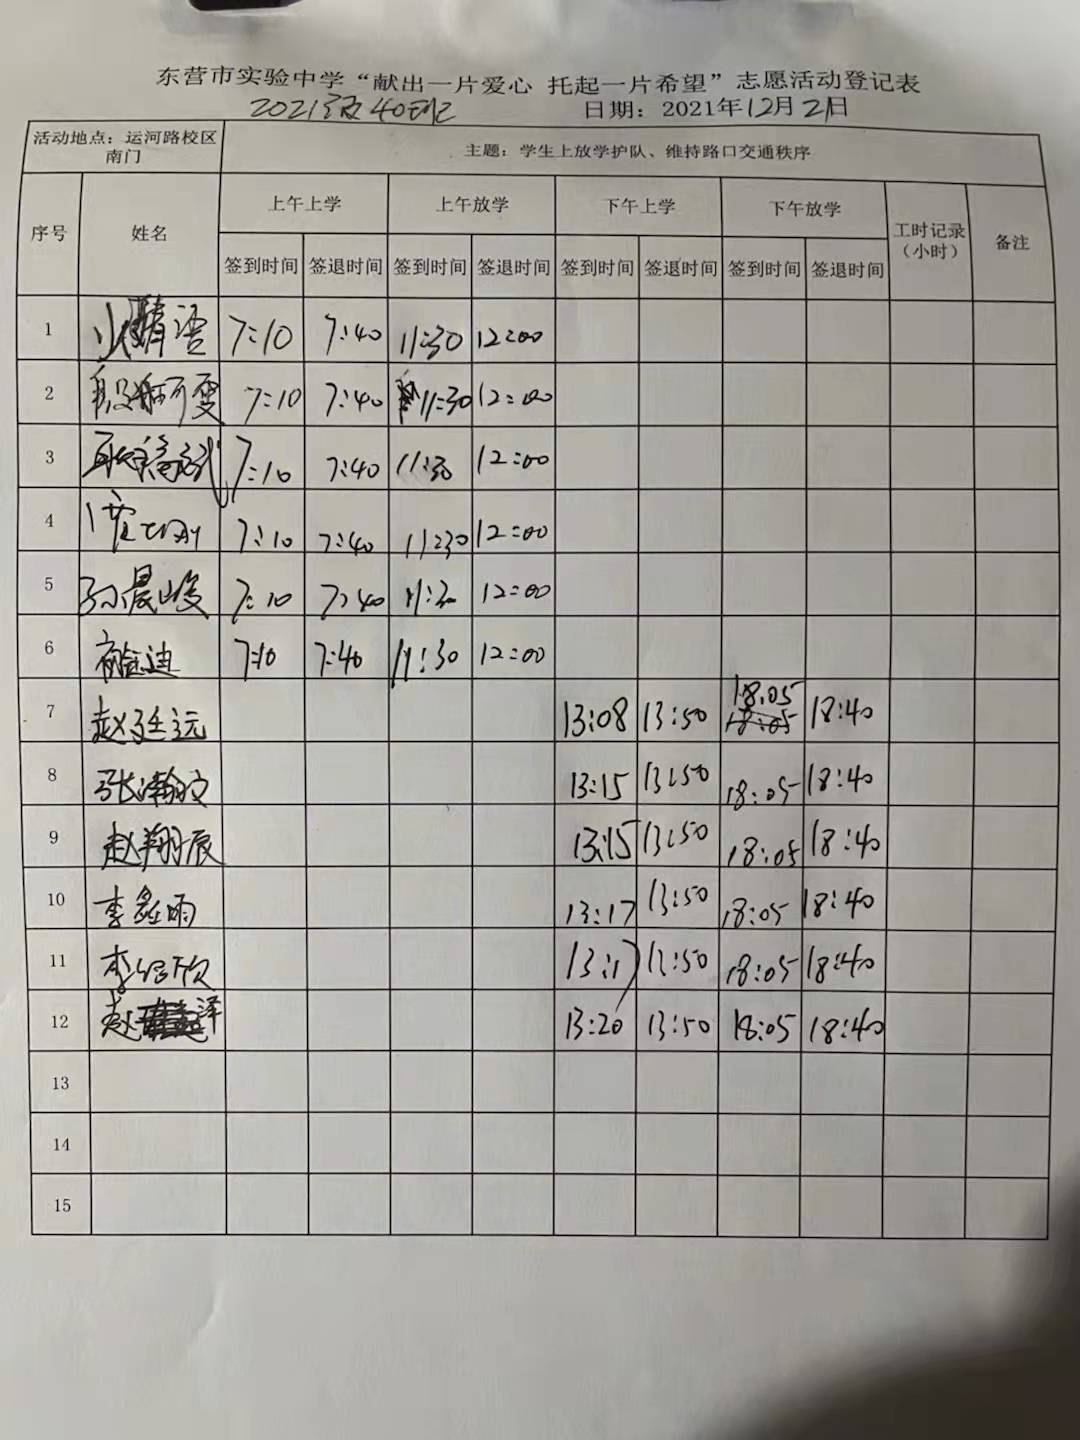 东营市实验中学“献出一片爱心 托起一片希望”志愿活动登记表
2021级40班 日期：2021年12月2日
活动地点：运河路校区南门 主题：学生上放学护队、维持路口交通秩序
序号 姓名 上午上学 上午放学 下午上学 下午放学 工时记录（小时） 备注
签到时间 签退时间 签到时间 签退时间 签到时间 签退时间 签到时间 签退时间
1 7:10 7:40 11:30 12:00
2 7:10 7:40 11:30 12:00
3 7:10 7:40 11:30 12:00
4 7:10 7:40 11:30 12:00
5 孙晨峻 7:10 7:40 11:30 12:00
6 7:10 7:40 11:30 12:00
7 赵廷远 13:08 13:50 18:05 18:40
8 张瀚文 13:15 13:50 18:05 18:40
9 赵翔辰 13:15 13:50 18:05 18:40
10 李 雨 13:17 13:50 18:05 18:40
11 李 欣 13:17 13:50 18:05 18:40
12 赵 泽 13:20 13:50 18:05 18:40
13
14
15